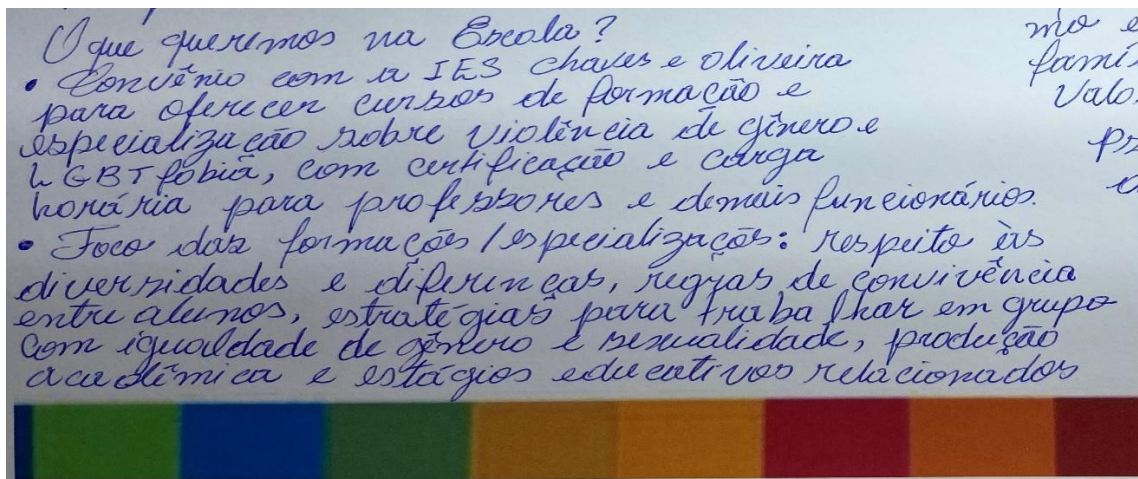 O que queremos na Escola?
• Convênio com a IES chaves e oliveira
para oferecer cursos de formação e
especialização sobre violência de gênero e
LGBTfobia, com certificação e carga
horária para professores e demais funcionários.
• Foco das formações/especializações: respeito às
diversidades e diferenças, regras de convivência
entre alunos, estratégias para trabalhar em grupo
com igualdade de gênero e sexualidade, produção
acadêmica e estágios educativos relacionados
mo e
famí
Valo